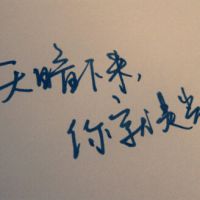 天暗下来，
你就是